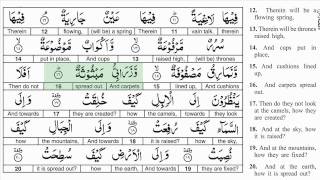 فِيهَا لَاغِيَةً ١١ فِيهَا عَيْنٌ جَارِيَةٌ ١٢ فِيهَا
Therein 12 flowing, (will be) a spring Therein 11 vain talk, therein
سُرُرٌ مَرْفُوعَةٌ ١٣ وَأَكْوَابٌ مَوْضُوعَةٌ ١٤
14 put in place, And cups 13 raised high, (will be) thrones
وَنَمَارِقُ مَصْفُوفَةٌ ١٥ وَزَرَابِيُّ مَبْثُوثَةٌ ١٦ أَفَلَا
Then do not 16 spread out And carpets 15 lined up, And cushions
يَنْظُرُونَ إِلَى الْإِبِلِ كَيْفَ خُلِقَتْ ١٧ وَإِلَى
And towards 17 they are created? how the camels, towards they look
السَّمَاءِ كَيْفَ رُفِعَتْ ١٨ وَإِلَى الْجِبَالِ كَيْفَ
how the mountains, And towards 18 it is raised? how the sky,
نُصِبَتْ ١٩ وَإِلَى الْأَرْضِ كَيْفَ سُطِحَتْ ٢٠
20 it is spread out? how the earth, And towards 19 they are fixed?
12. Therein will be a
flowing spring,
13. Therein will be thrones
raised high,
14. And cups put in
place,
15. And cushions lined
up,
16. And carpets spread
out.
17. Then do they not look
at the camels, how
they are created?
18. And at the sky, how
it is raised?
19. And at the mountains,
how they are fixed?
20. And at the earth, how
it is spread out?